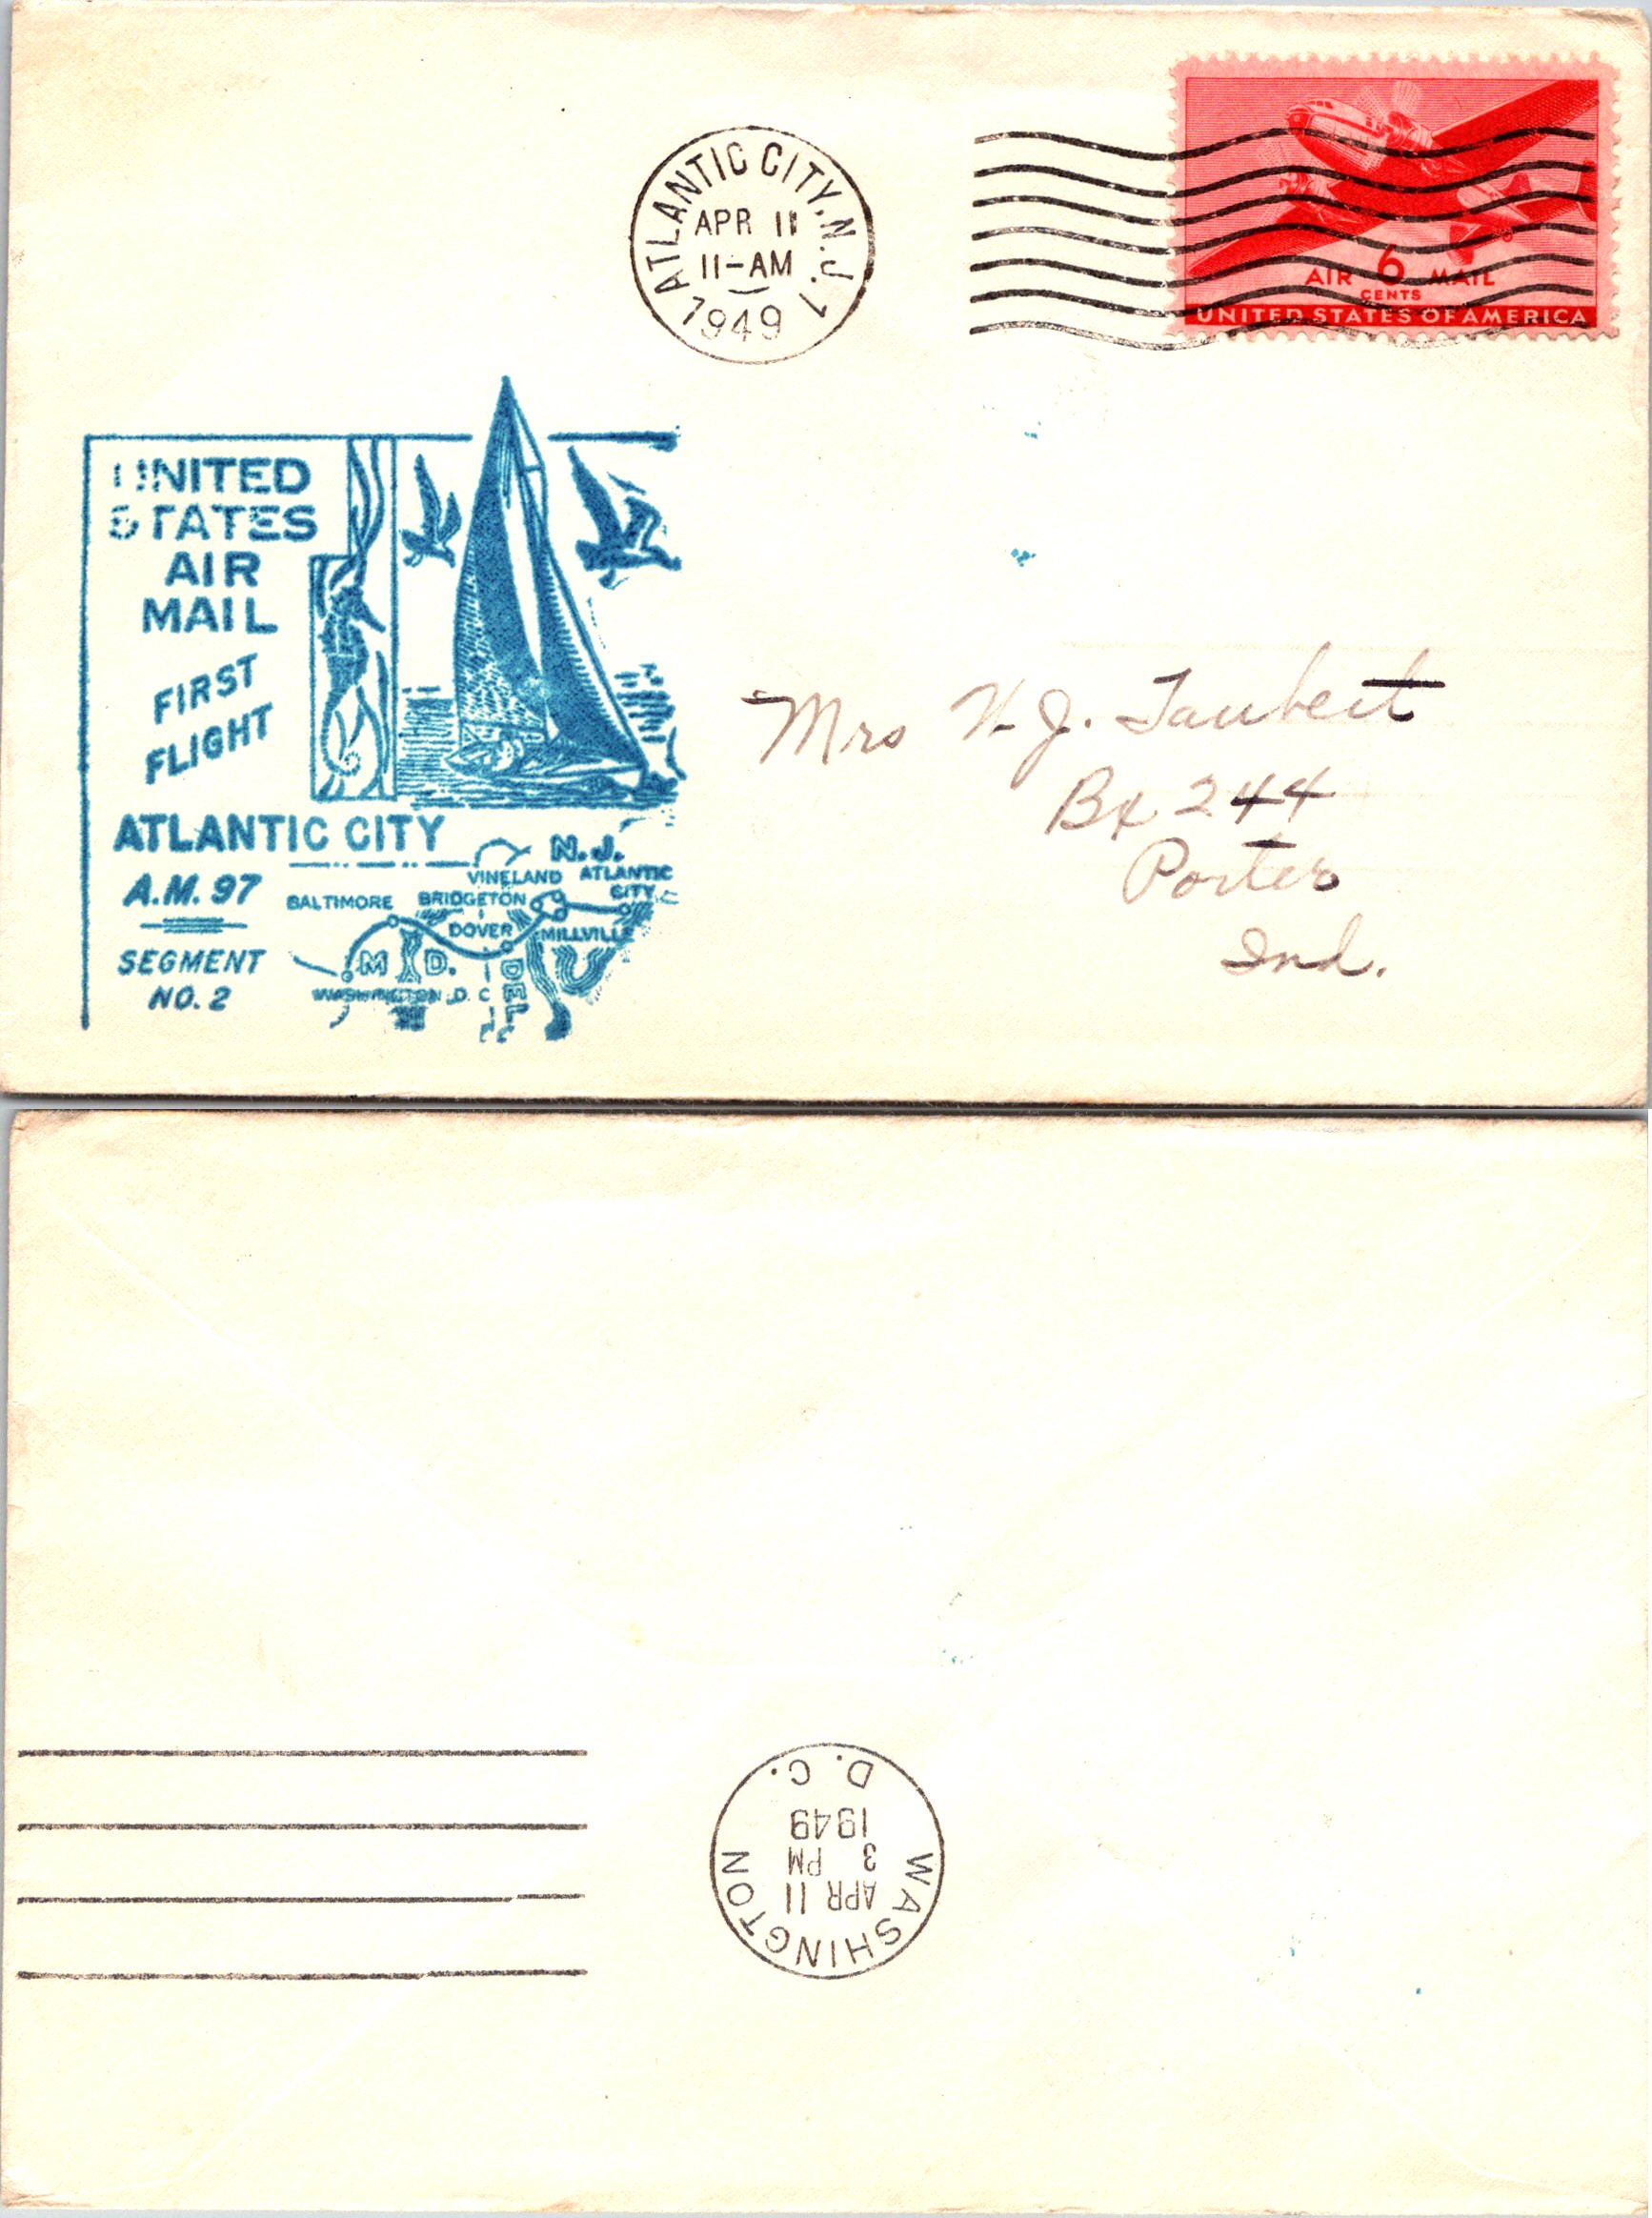 ATLANTIC CITY, N.J. 1
APR 11
11-AM
1949
AIR 6 MAIL
CENTS
UNITED STATES OF AMERICA
UNITED
STATES
AIR
MAIL
FIRST
FLIGHT
ATLANTIC CITY
A.M. 97
SEGMENT
NO. 2
N.J.
VINELAND ATLANTIC
CITY
BALTIMORE BRIDGETON
DOVER MILLVILLE
MD.
DEL
WASHINGTON D.C
Mrs V. J. Taubert
Bx 244
Porter
Ind.
WASHINGTON
APR 11
3 PM
1949
D.C.